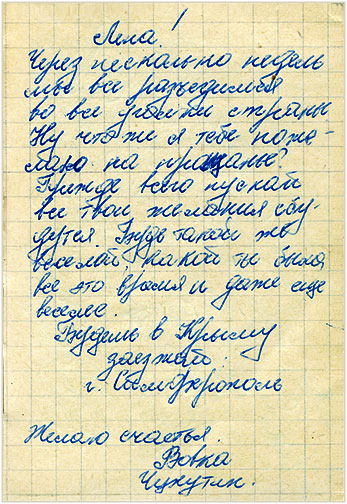 Лена!
Через несколько недель
мы все разъедимся
во все уголки страны
Ну что же я тебе поже-
лаю на прощанье?
Прежде всего пускай
все твои желания сбу-
дутся. Будь такой же
веселой, какой ты была
все это время и даже еще
веселее.
Будешь в Крыму
заезжай.
г. Симферополь
Желаю счастья.
Вовка